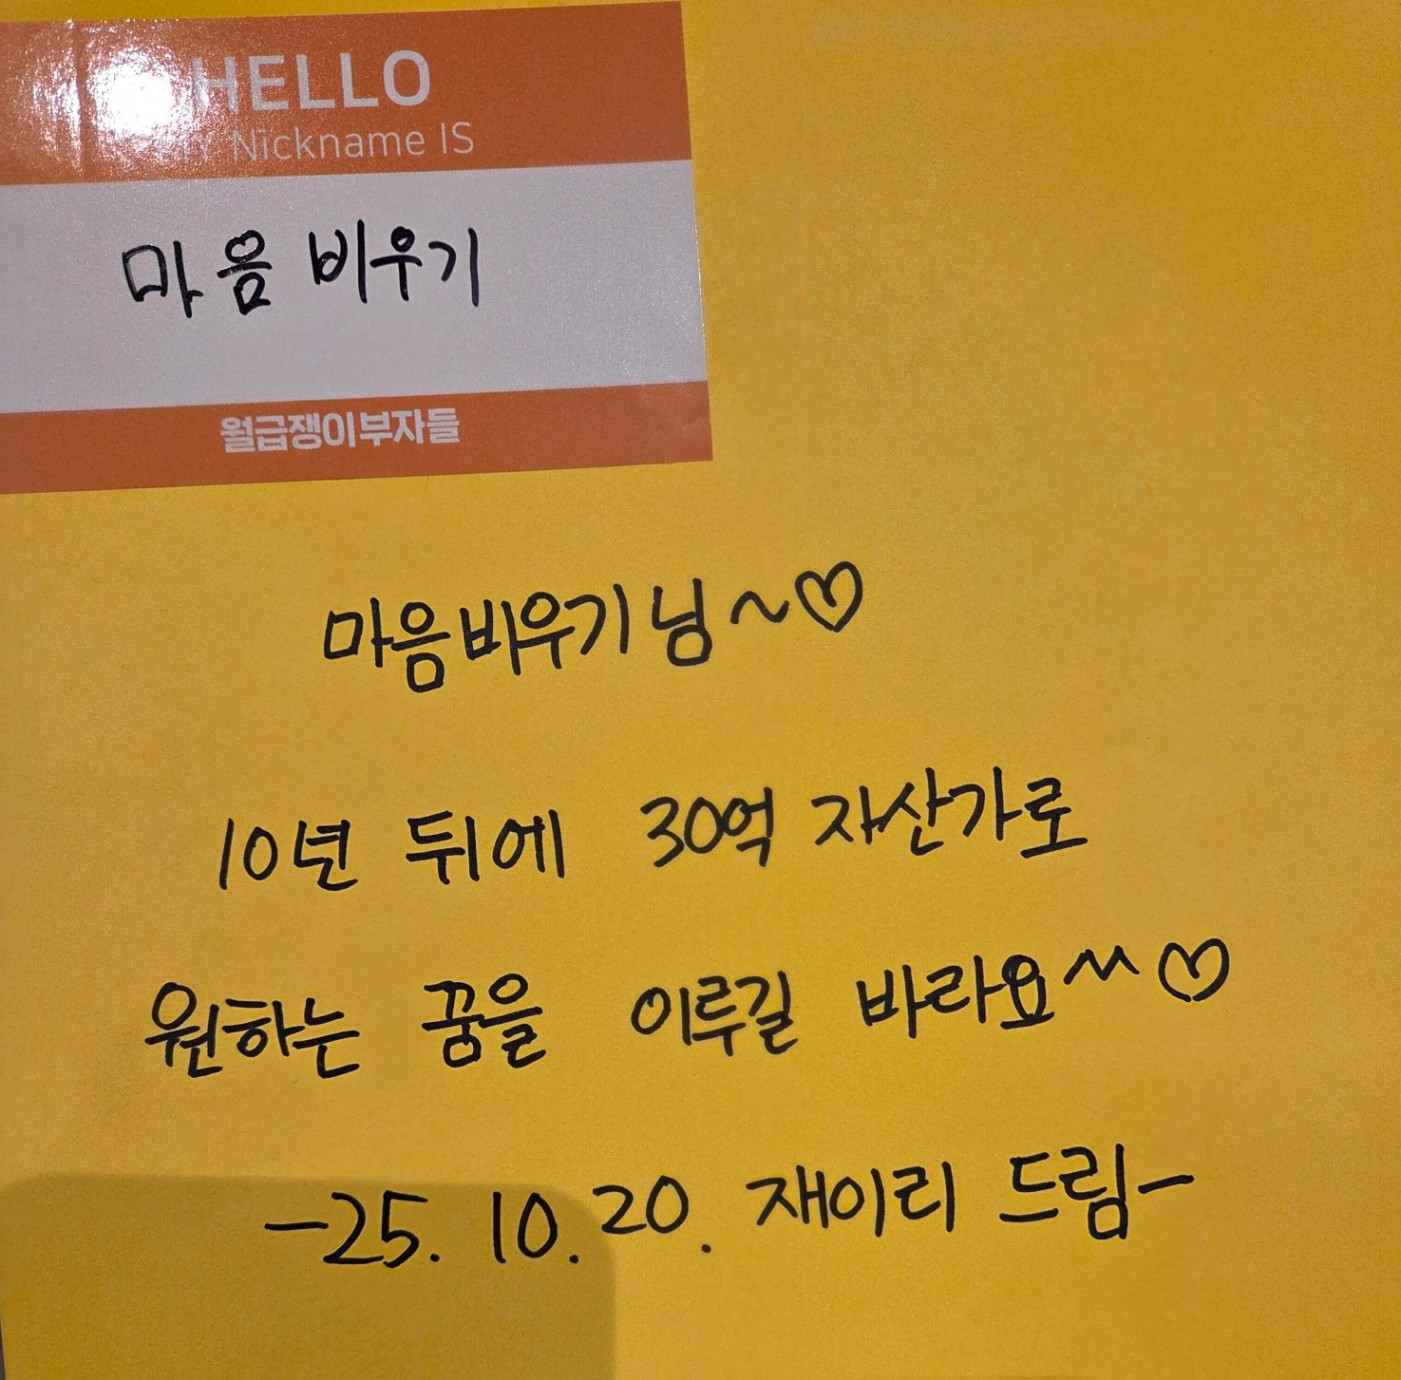 HELLO
MY Nickname IS
마음 비우기
월급쟁이부자들
마음비우기님~♡
10년 뒤에 30억 자산가로
원하는 꿈을 이루길 바라요^^♡
-25. 10. 20. 재이리 드림-